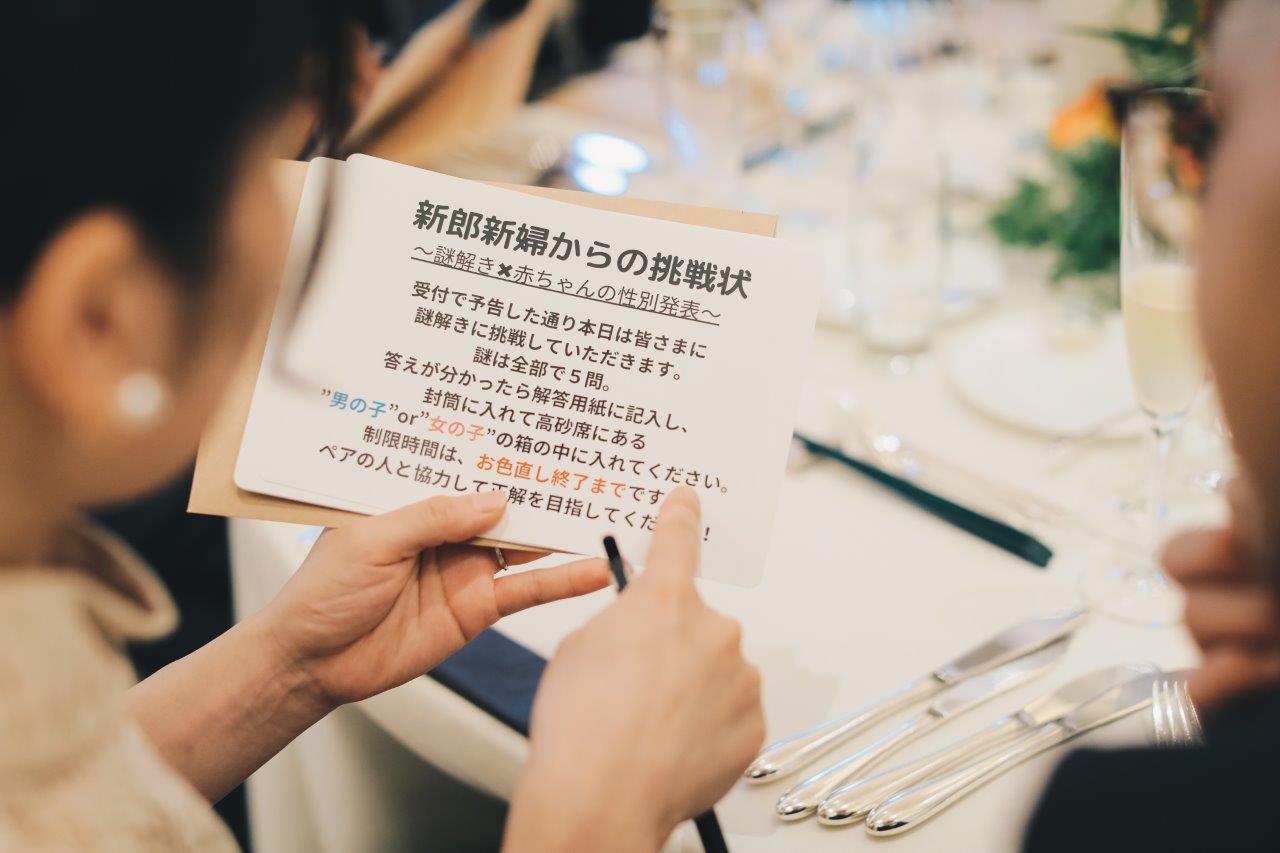 新郎新婦からの挑戦状
～謎解き✖赤ちゃんの性別発表～
受付で予告した通り本日は皆さまに
謎解きに挑戦していただきます。
謎は全部で５問。
答えが分かったら解答用紙に記入し、
封筒に入れて高砂席にある
”男の子”or”女の子”の箱の中に入れてください。
制限時間は、お色直し終了までです
ペアの人と協力して正解を目指してくだ！